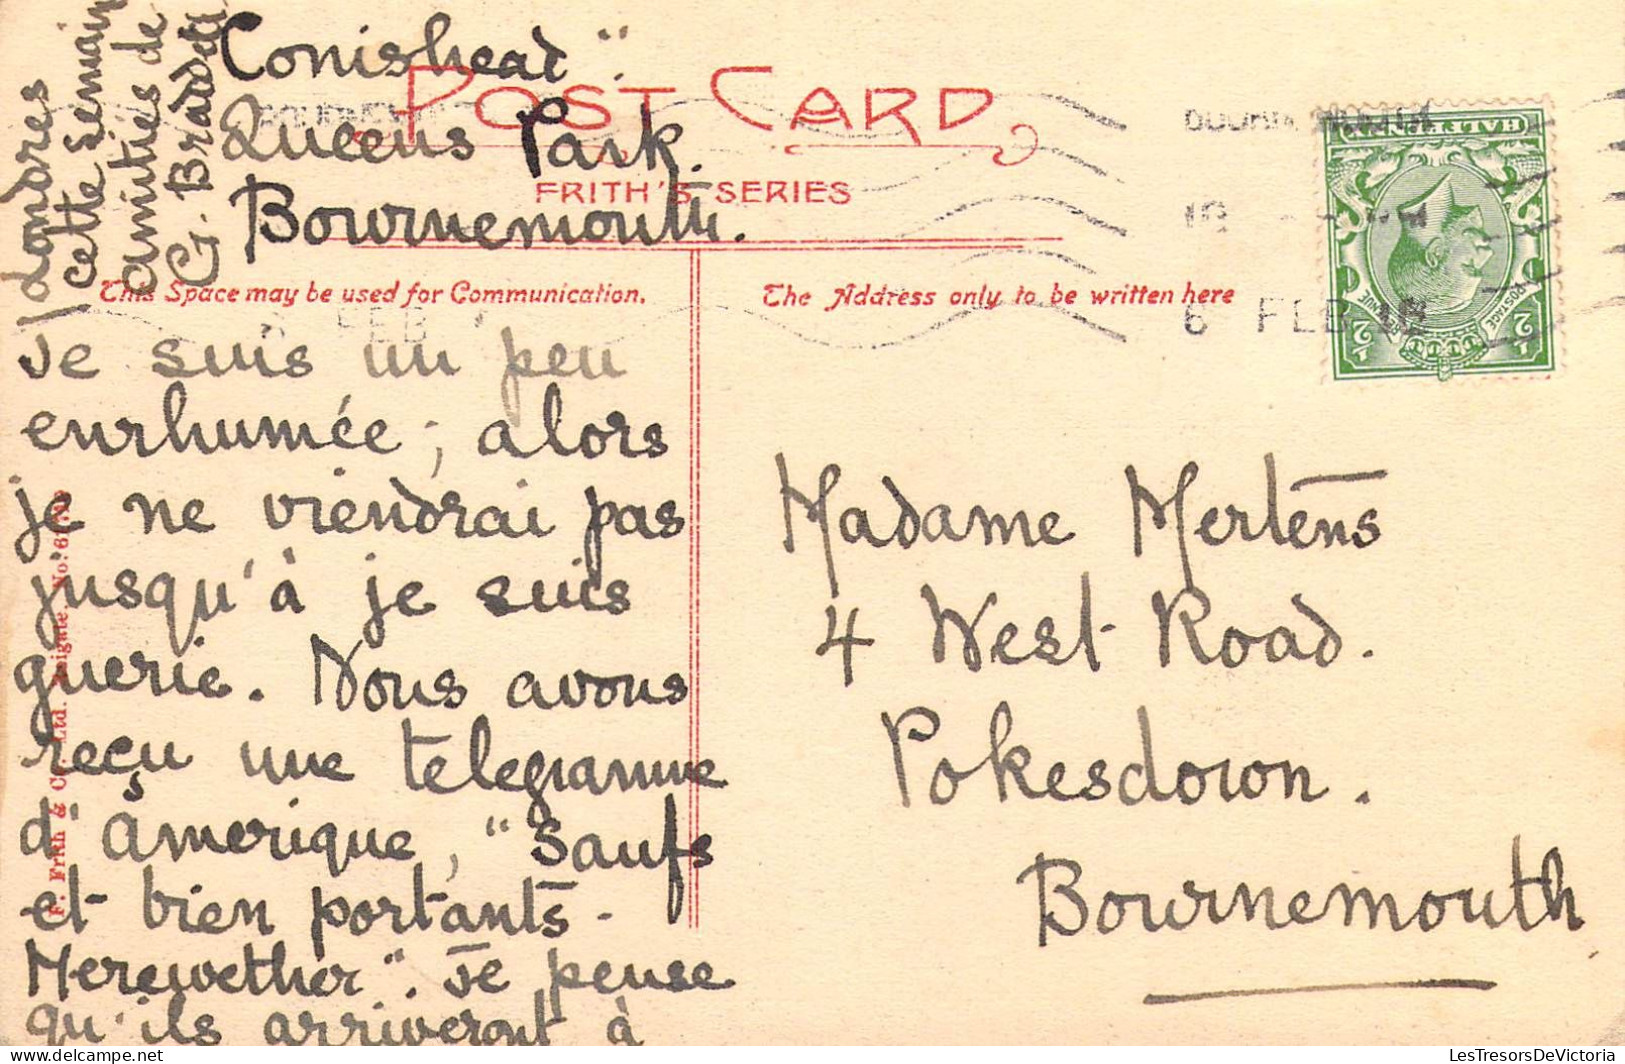 Conishead".
Queens Park.
Bournemouth.
POST CARD
FRITH'S SERIES
This Space may be used for Communication.
The Address only to be written here
Je suis un peu
enrhumée; alors
je ne viendrai pas
jusqu'à je suis
guerie. Nous avons
reçu une telegramme
d'Amerique, "Saufs
et bien portants -
Merewether". Je pense
qu'ils arriveront à
Londres
cette semain
Amitiés de
Madame Mertens
4 West Road.
Pokesdown.
Bournemouth
6 FEB 18
HALFPENNY
POSTAGE
REVENUE
½
½
F. Frith & Co. Ltd. Reigate. No.
LesTresorsDeVictoria